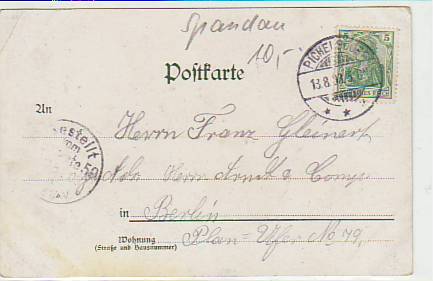 Spandau
10,-
5
PICHELS
13.8.
Postkarte
An
Herrn Franz Gleinert
estellt
Adr. Herrn Arndt & Comp.
in Berlin
Wohnung Plan-Ufer No 79,
(Straße und Hausnummer)